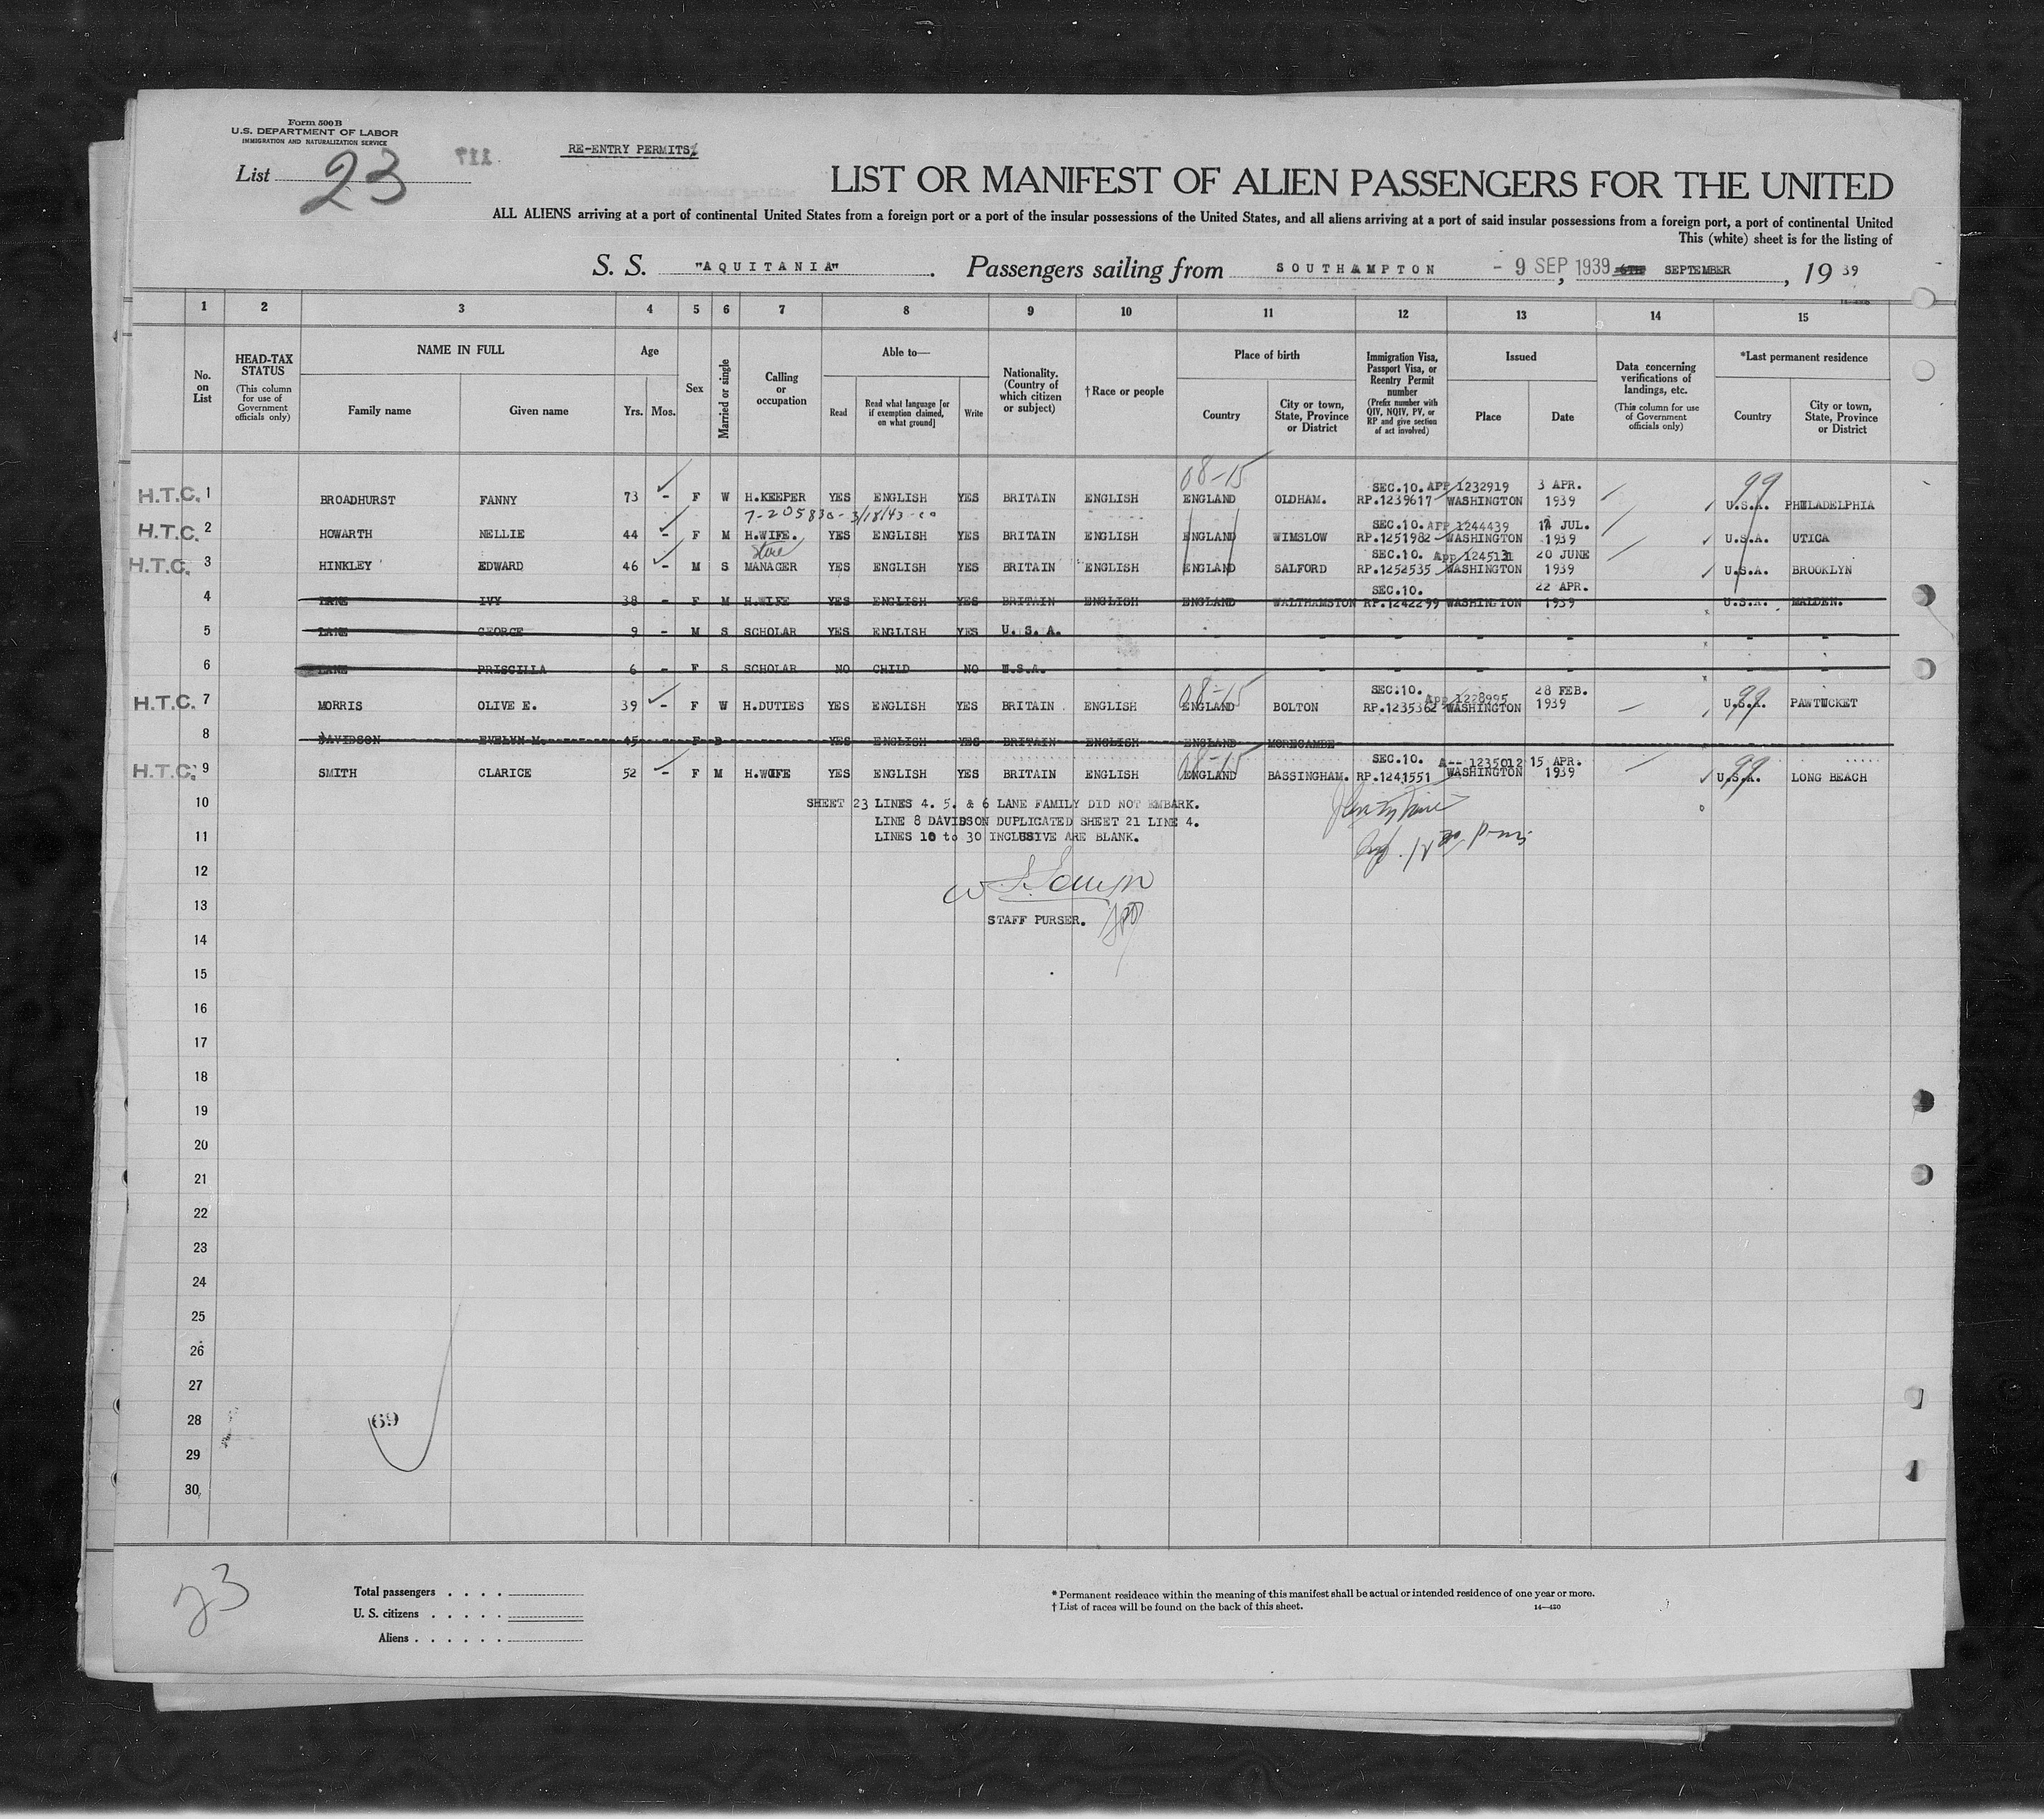 Form 500B
U.S. DEPARTMENT OF LABOR
IMMIGRATION AND NATURALIZATION SERVICE
List 23
RE-ENTRY PERMITS
LIST OR MANIFEST OF ALIEN PASSENGERS FOR THE UNITED
ALL ALIENS arriving at a port of continental United States from a foreign port or a port of the insular possessions of the United States, and all aliens arriving at a port of said insular possessions from a foreign port, a port of continental United
This (white) sheet is for the listing of
S. S. "AQUITANIA". Passengers sailing from SOUTHAMPTON - 9 SEP 1939, SEPTEMBER, 19 39
1 2 3 4 5 6 7 8 9 10 11 12 13 14 15
No. on List
HEAD-TAX STATUS (This column for use of Government officials only)
NAME IN FULL
Family name
Given name
Age
Yrs. Mos.
Sex
Married or single
Calling or occupation
Able to—
Read
Read what language [or if exemption claimed, on what ground]
Write
Nationality. (Country of which citizen or subject)
† Race or people
Place of birth
Country
City or town, State, Province or District
Immigration Visa, Passport Visa, or Reentry Permit number (Prefix number with QIV, NQIV, PV, or RP and give section of act involved)
Issued
Place
Date
Data concerning verifications of landings, etc. (This column for use of Government officials only)
*Last permanent residence
Country
City or town, State, Province or District
08-15
H.T.C. 1 BROADHURST FANNY 73 - F W H.KEEPER YES ENGLISH YES BRITAIN ENGLISH ENGLAND OLDHAM. SEC.10. RP.1239617 APP 1232919 WASHINGTON 3 APR. 1939 99 U.S.A. PHILADELPHIA
7-205830-3/18/43-
H.T.C. 2 HOWARTH NELLIE 44 - F M H.WIFE. YES ENGLISH YES BRITAIN ENGLISH ENGLAND WIMSLOW SEC.10. RP.1251982 APP 1244439 WASHINGTON JUL. 1939 U.S.A. UTICA
H.T.C. 3 HINKLEY EDWARD 46 - M S Store MANAGER YES ENGLISH YES BRITAIN ENGLISH ENGLAND SALFORD SEC.10. RP.1252535 App 1245131 WASHINGTON 20 JUNE 1939 U.S.A. BROOKLYN
4 LANE IVY 38 - F M H.WIFE YES ENGLISH YES BRITAIN ENGLISH ENGLAND WALTHAMSTON SEC.10. RP.1242299 WASHINGTON 22 APR. 1939 U.S.A. MALDEN.
5 LANE GEORGE 9 - M S SCHOLAR YES ENGLISH YES U.S.A. - - - - - - -
6 LANE PRISCILLA 6 - F S SCHOLAR NO CHILD NO U.S.A. - - - - - - -
H.T.C. 7 MORRIS OLIVE E. 39 - F W H.DUTIES YES ENGLISH YES BRITAIN ENGLISH 08-15 ENGLAND BOLTON SEC.10. RP.1235362 App 1228995 WASHINGTON 28 FEB. 1939 99 U.S.A. PAWTUCKET
8 DAVIDSON EVELYN M. 45 - F D YES ENGLISH YES BRITAIN ENGLISH ENGLAND MORECAMBE
H.T.C. 9 SMITH CLARICE 52 - F M H.WIFE YES ENGLISH YES BRITAIN ENGLISH 08-15 ENGLAND BASSINGHAM. SEC.10. RP.1241551 A-- 1235012 WASHINGTON 15 APR. 1939 99 U.S.A. LONG BEACH
10 SHEET 23 LINES 4. 5. & 6 LANE FAMILY DID NOT EMBARK.
LINE 8 DAVIDSON DUPLICATED SHEET 21 LINE 4.
11 LINES 10 to 30 INCLUSIVE ARE BLANK.
12
13 STAFF PURSER.
14
15
16
17
18
19
20
21
22
23
24
25
26
27
28 69
29
30
23
Total passengers
U. S. citizens
Aliens
* Permanent residence within the meaning of this manifest shall be actual or intended residence of one year or more.
† List of races will be found on the back of this sheet.
14—420